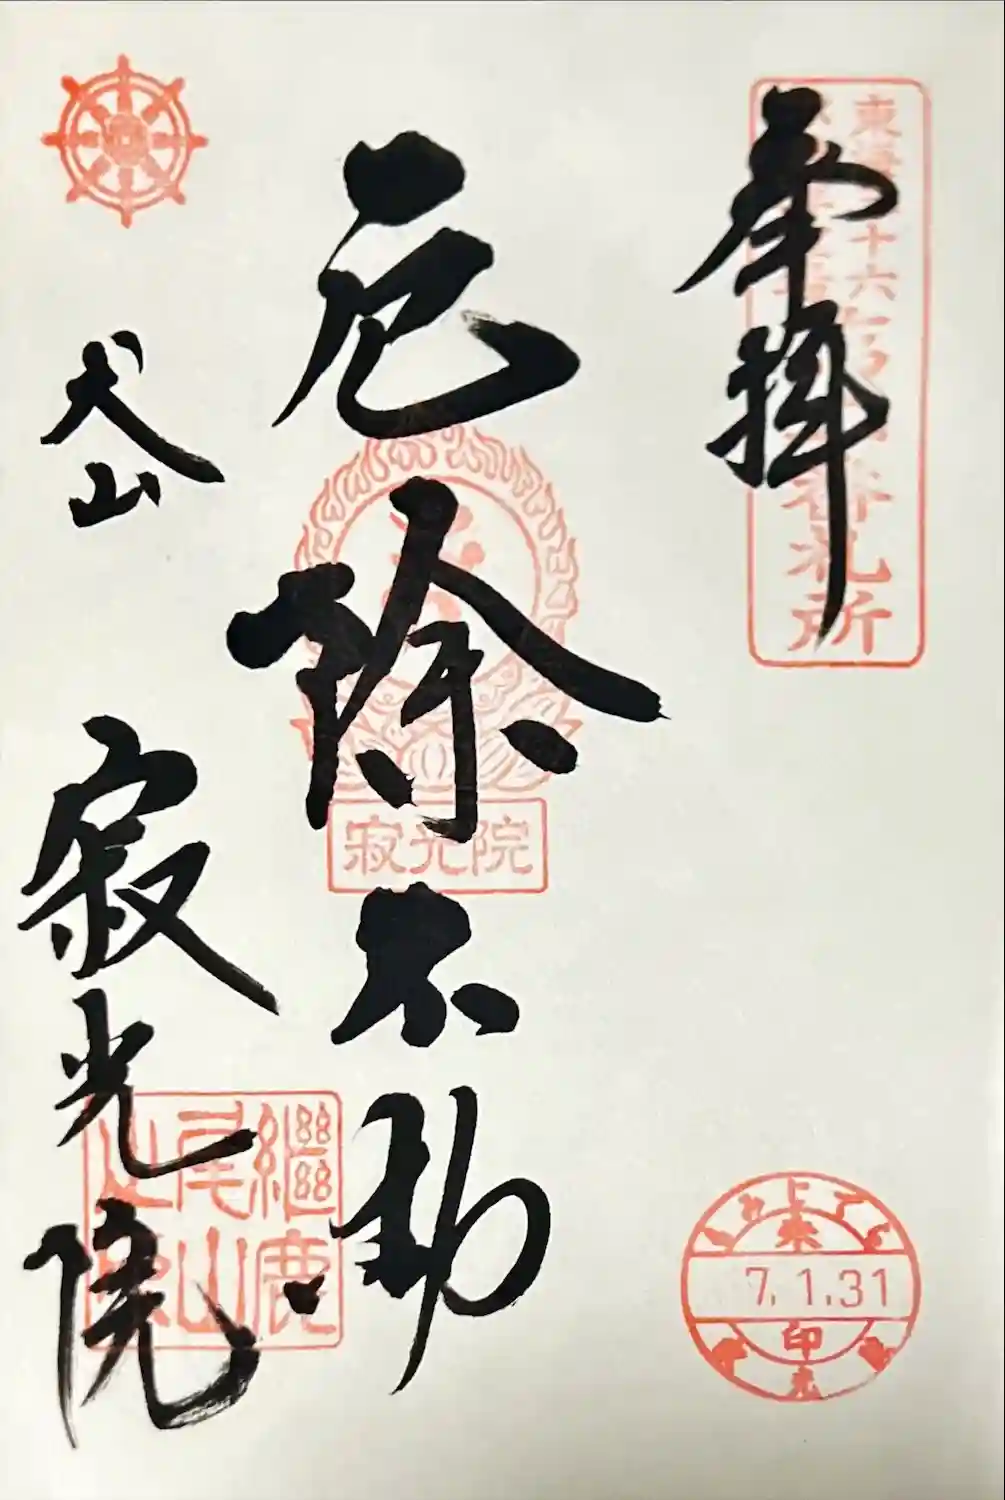 奉拝
東海三十六不動尊
番札所
厄除不動
寂光院
犬山
寂光院
継鹿
尾山
来
7.1.31
印